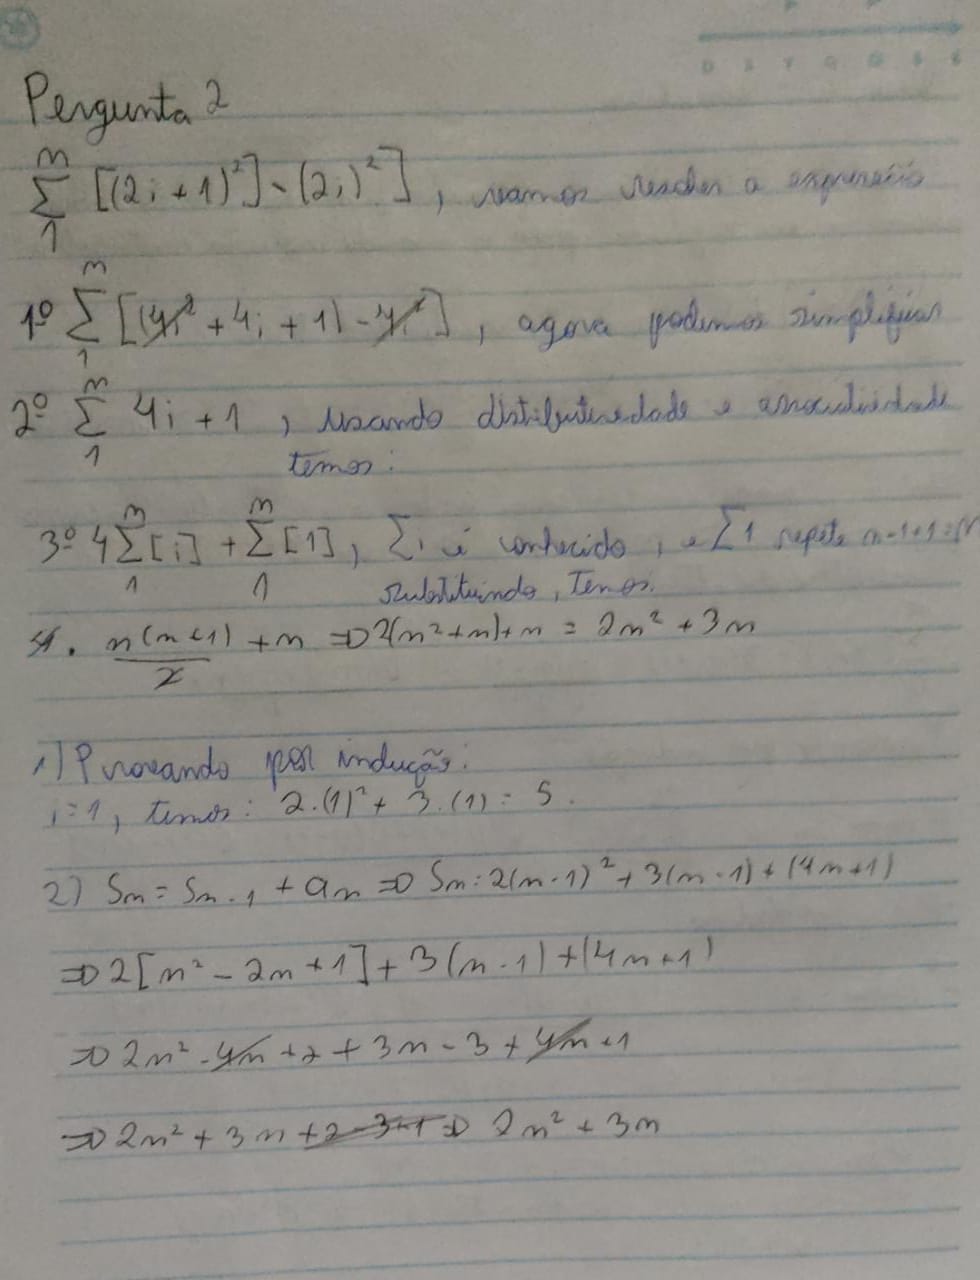 Pergunta 2
m
∑ [(2i + 1)²] - (2i)²], vamos resolver a expressão
1
1º m∑1 [(4i² + 4i + 1) - 4i²], agora podemos simplificar
2º m∑1 4i + 1, usando distributividade e associatividade
temos:
3º 4 m∑1 [i] + m∑1 [1], ∑i é conhecido, e ∑1 repete n-1+1=n
substituindo, temos.
4. n(n+1)/2 + n ⇒ 2(n²+n)+n = 2n² + 3n
1) Provando por indução:
i=1, temos: 2.(1)² + 3.(1) = 5.
2) Sn = Sn-1 + an ⇒ Sn = 2(n-1)² + 3(n-1) + (4n+1)
⇒ 2[n² - 2n + 1] + 3(n-1) + (4n+1)
⇒ 2n² - 4n + 2 + 3n - 3 + 4n + 1
⇒ 2n² + 3n + 2 - 3 + 1 ⇒ 2n² + 3n